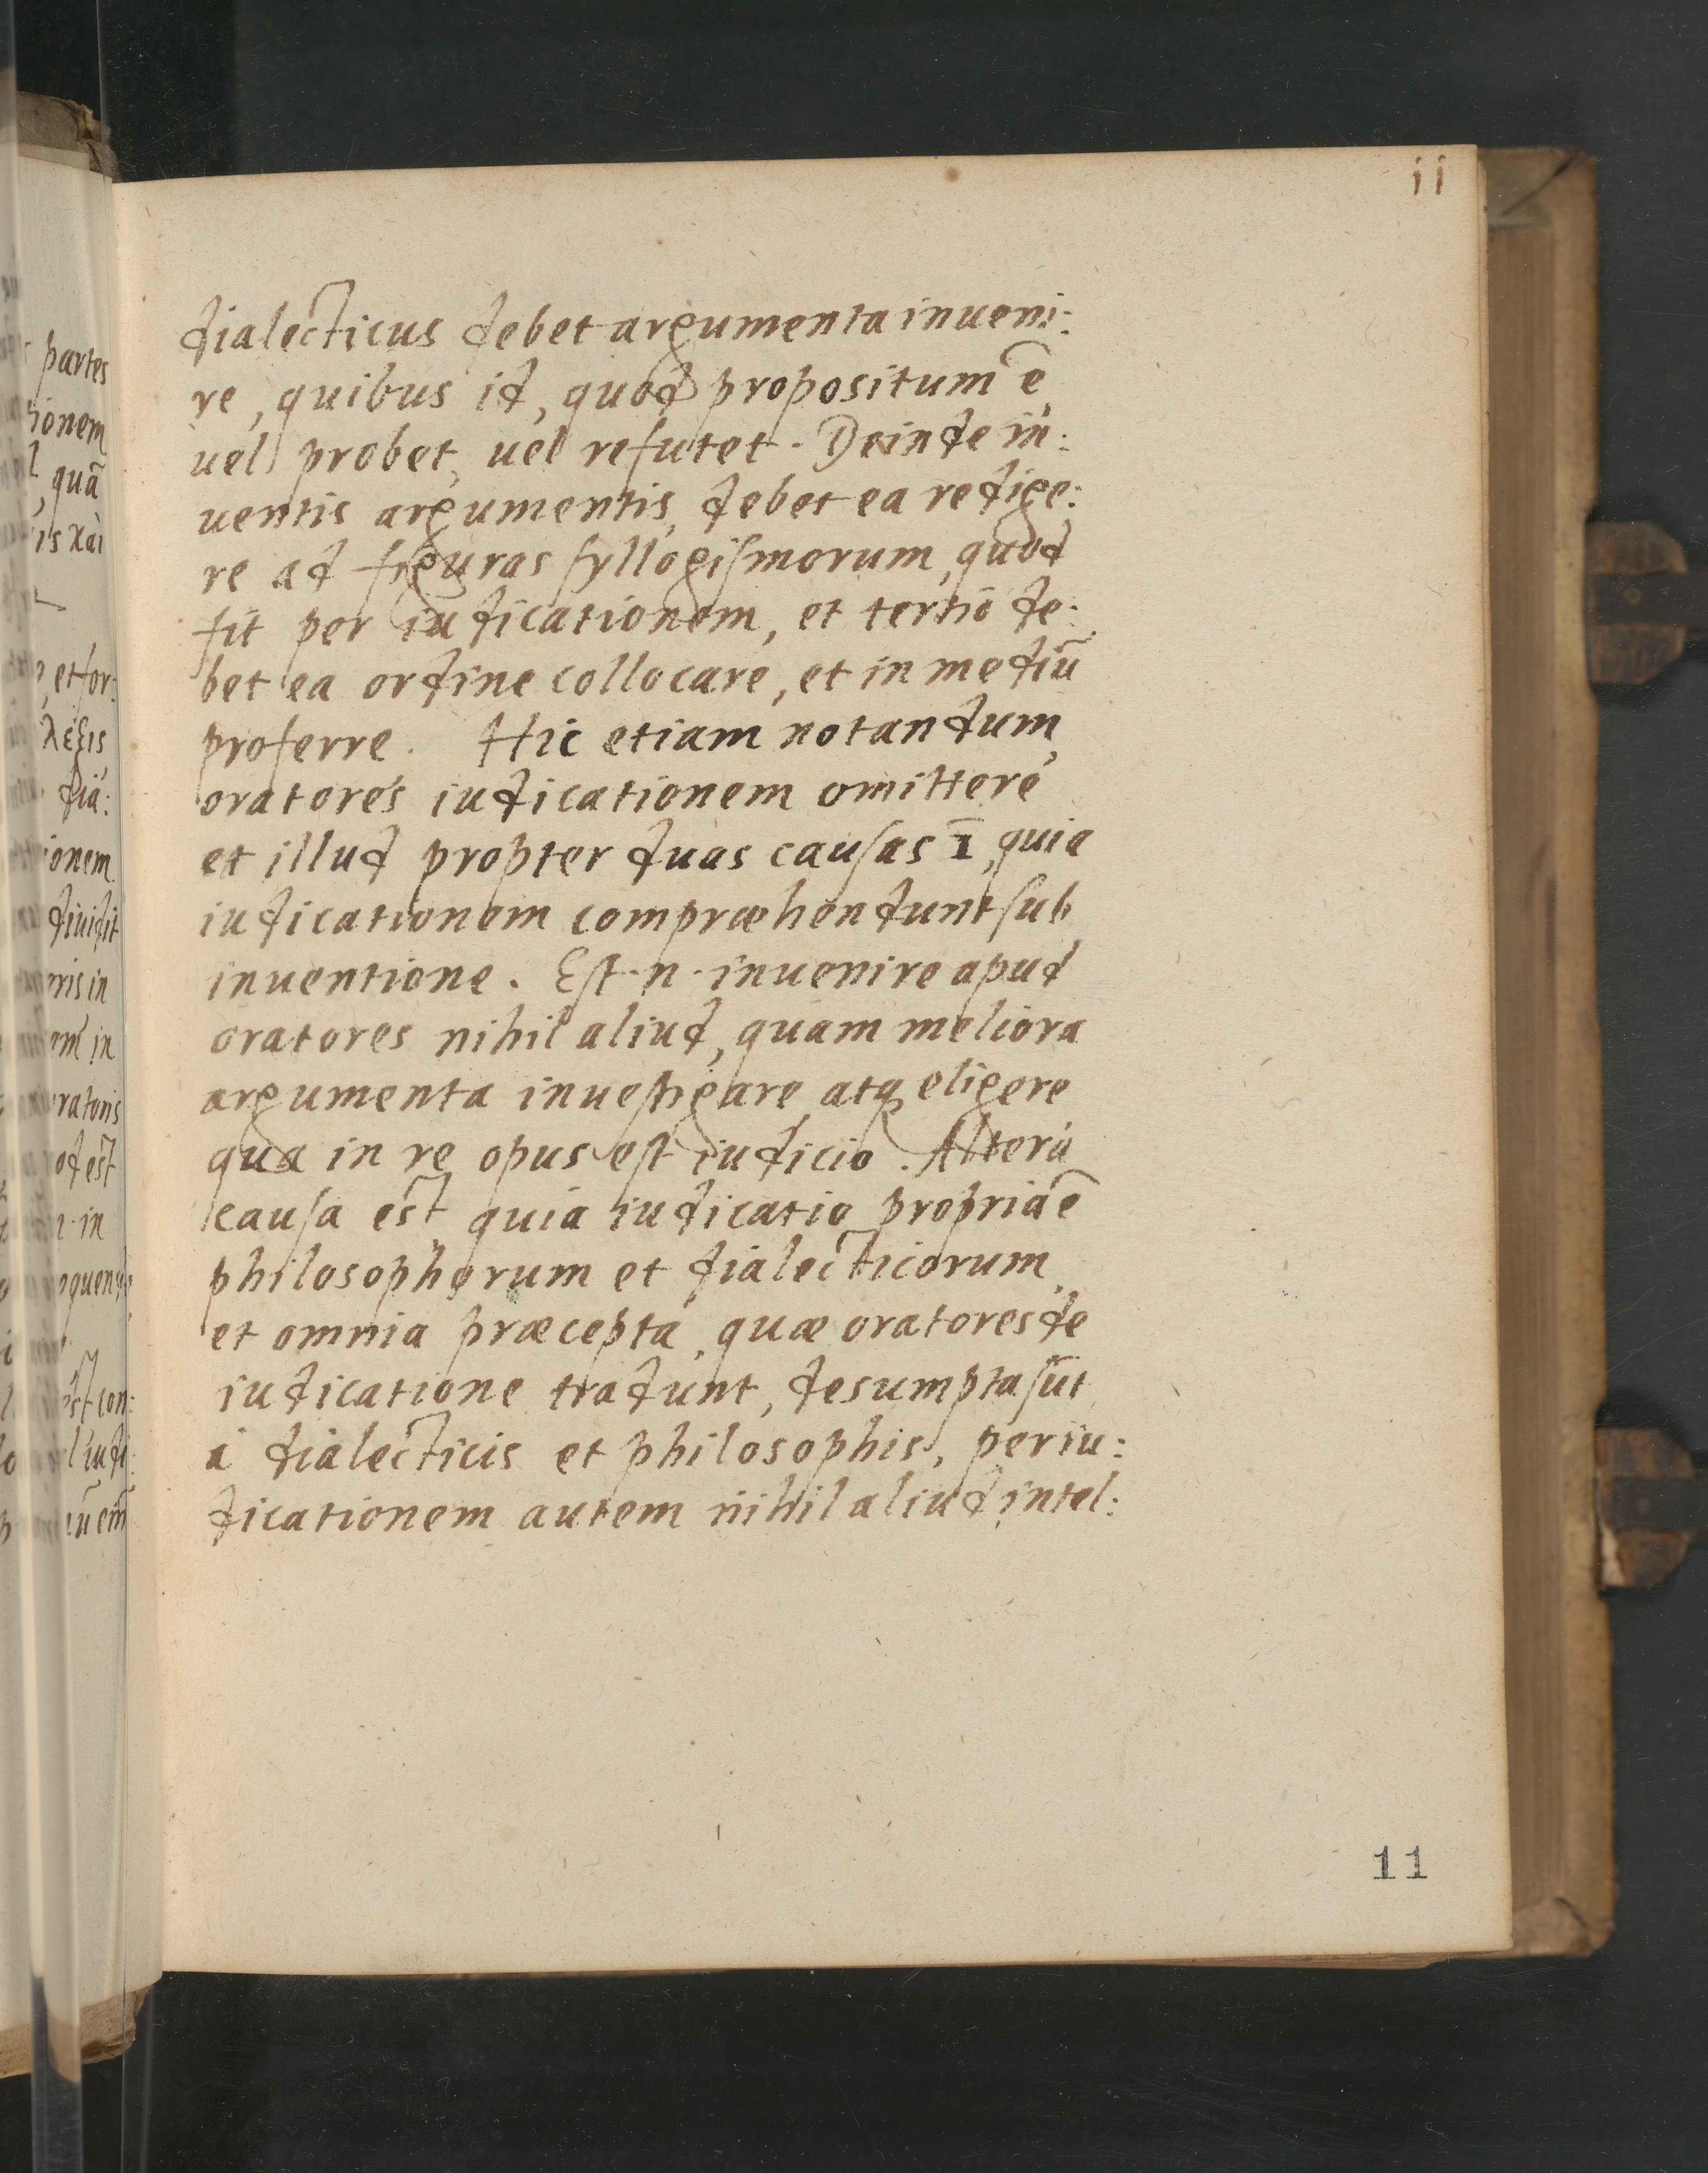 ii
dialecticus debet argumenta inueni:
re, quibus id, quod propositum ē
uel probet, uel refutet. Deinde in:
uentis argumentis, debet ea redige:
re ad figuras ſyllogiſmorum, quod
fit per iudicationem, et tertio de:
bet ea ordine collocare, et in mediū
proferre. Hic etiam notandum,
oratores iudicationem omittere
et illud propter duas cauſas ī, quia
iudicationem compræhendunt ſub
inuentione. Eſt .n. inuenire apud
oratores nihil aliud, quam meliora
argumenta inueſtigare, atq eligere
qua in re opus eſt iudicio. Altera
cauſa est quia iudicatio propria ē
philosophorum et dialecticorum,
et omnia præcepta, quæ oratores de
iudicatione tradunt, desumpta ſūt
à dialecticis et philosophis, per iu:
dicationem autem nihil aliud intel:
11
partes
ionem
quā
is καὶ
et for:
λεξις
dia:
ionem
diuidit
ris in
em in
ratoris
od est
n. in
quens
st con:
l iudi: